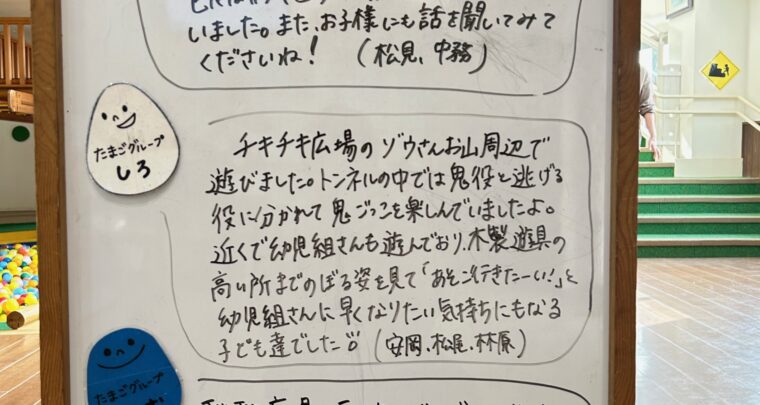 いました。また、お子様にも話を聞いてみて
くださいね！ （松見、中務）
たまごグループ
しろ
チキチキ広場の ゾウさんお山周辺で
遊びました。トンネルの中では鬼役と逃げる
役に分かれて鬼ごっこを楽しんでいましたよ。
近くで幼児組さんも遊んでおり、木製遊具の
高い所までのぼる姿を見て「あそこ行きたーい！」と
幼児組さんに早くなりたい気持ちにもなる
子ども達でした (安岡、松尾、林原)
たまごグループ